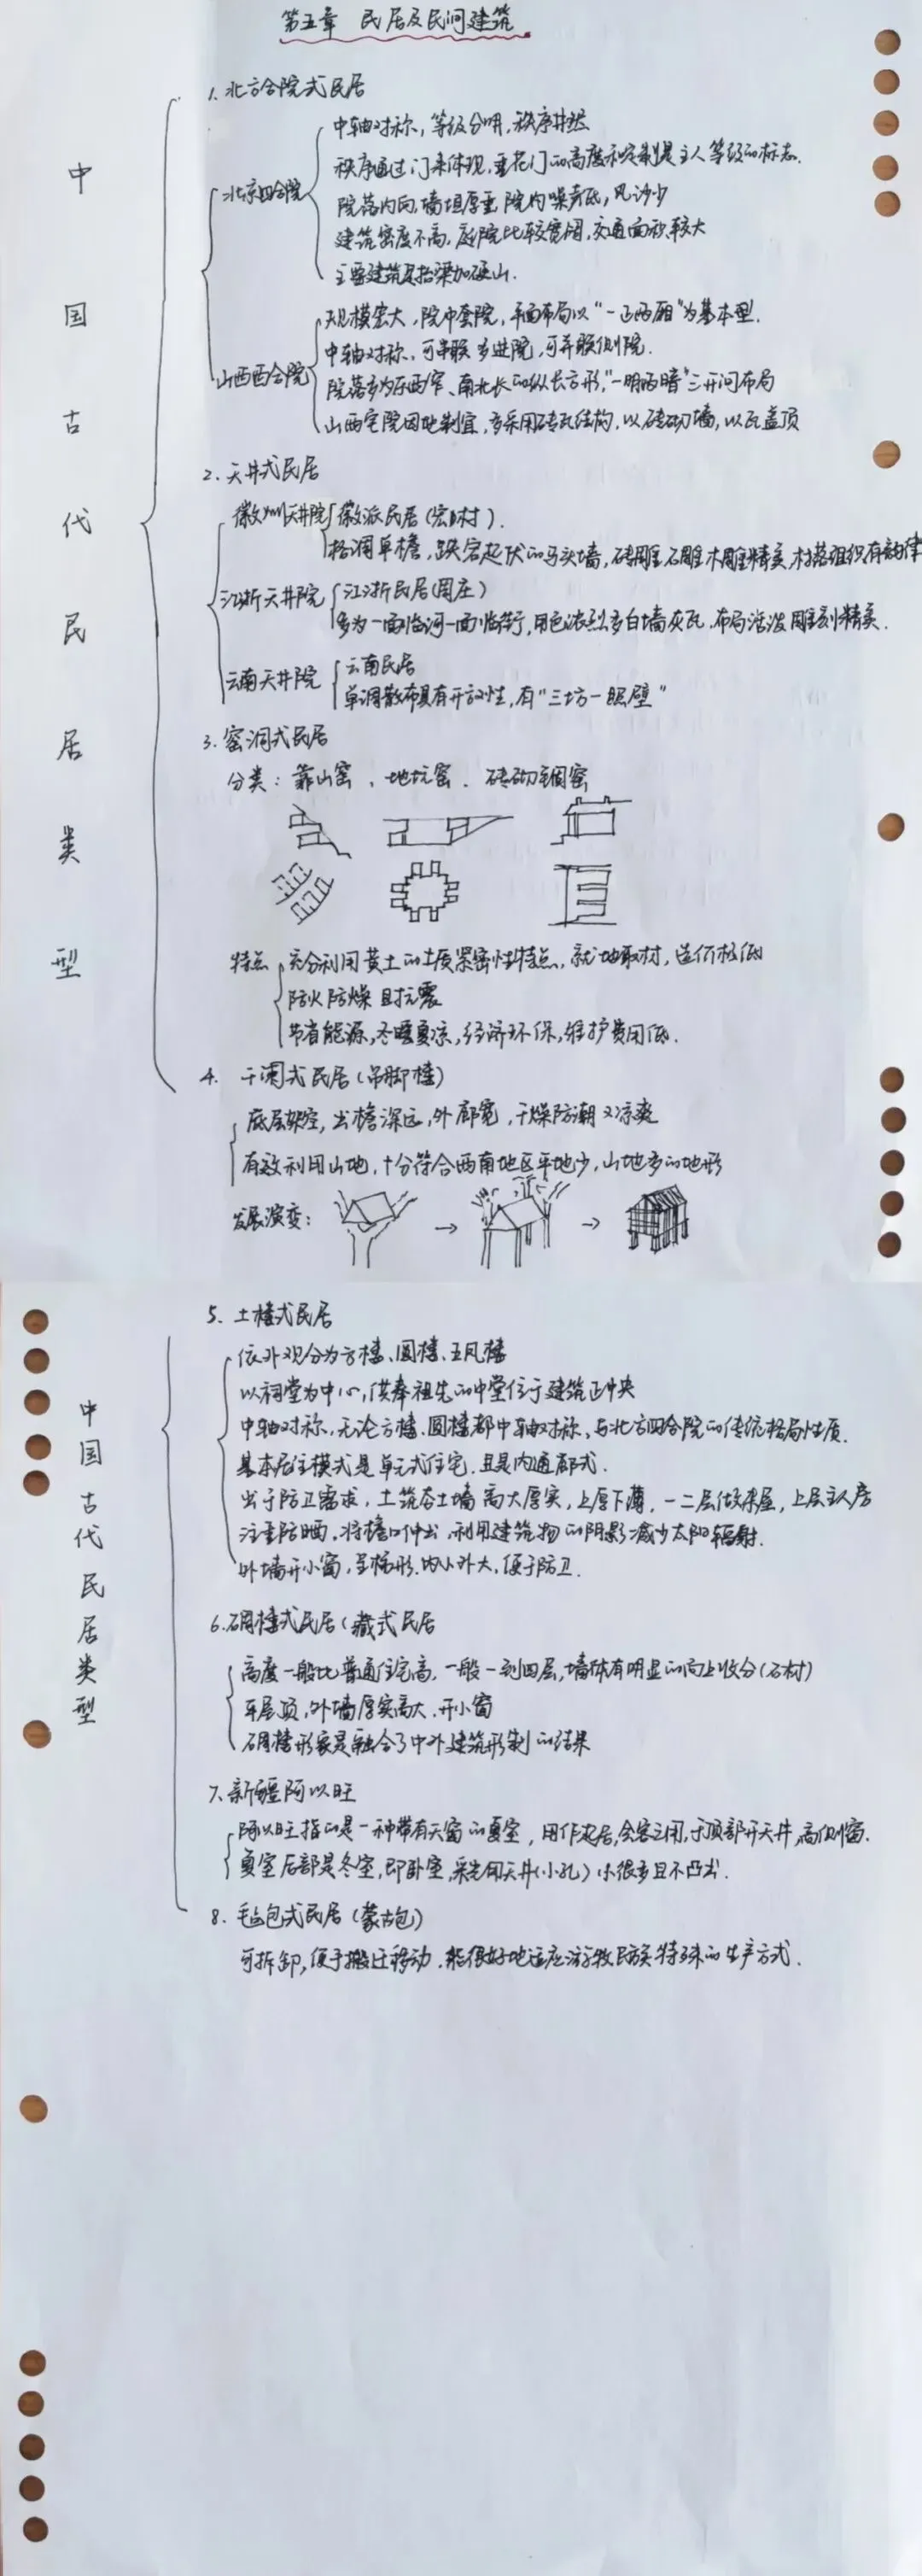 第五章 民居及民间建筑
中国古代民居类型
1. 北方合院式民居
北京四合院
中轴对称，等级分明，秩序井然
秩序通过门来体现，垂花门的高度和定制是主人等级的标志.
院落内向，墙垣厚重，院内噪音低，风沙少
建筑密度不高，庭院比较宽阔，交通面积较大
主要建筑是抬梁加硬山.
山西四合院
规模宏大，院中套院，平面布局以“一正两厢”为基本型.
中轴对称，可串联多进院，可并联侧院.
院落多为东西窄、南北长的纵长方形，“一明两暗”三开间布局
山西宅院因地制宜，多采用砖瓦结构，以砖砌墙，以瓦盖顶
2. 天井式民居
徽州天井院
徽派民居(宏村).
格调单檐，跌宕起伏的马头墙，砖雕石雕木雕精美，村落组织有韵律
江浙天井院
江浙民居(周庄)
多为一面临河一面临街，用色浓烈多白墙灰瓦.布局活泼雕刻精美.
云南天井院
云南民居
单调散布具有开放性，有“三坊一照壁”
3. 窑洞式民居
分类：靠山窑、地坑窑. 砖砌锢窑
特点
充分利用黄土的土质紧密性特点，就地取材，造价极低
防火防燥且抗震
节省能源，冬暖夏凉，经济环保，维护费用低.
4. 干阑式民居(吊脚楼)
底层架空，出檐深远，外廊宽，干燥防潮又凉爽
有效利用山地，十分符合西南地区平地少，山地多的地形
发展演变： → →
中国古代民居类型
5. 土楼式民居
依外观分为方楼、圆楼、五凤楼
以祠堂为中心，供奉祖先的中堂位于建筑正中央
中轴对称，无论方楼、圆楼都中轴对称，与北方四合院的传统格局性质.
基本居住模式是单元式住宅.且是内通廊式.
出于防卫需求，土筑夯土墙高大厚实，上厚下薄，一二层做杂屋，上层主人房
注重防晒，将檐口伸出，利用建筑物的阴影减少太阳辐射.
外墙开小窗，呈梯形.内小外大，便于防卫.
6. 碉楼式民居(藏式民居
高度一般比普通住宅高，一般一到四层，墙体有明显的向上收分(石材)
平屋顶，外墙厚实高大.开小窗
碉楼形象是融合了中外建筑形制的结果
7. 新疆阿以旺
阿以旺指的是一种带有天窗的夏室，用作起居，会客之用，于顶部开天井，高侧窗.
夏室后部是冬室，即卧室，采光用天井(小孔)小很多且不凸出.
8. 毡包式民居(蒙古包)
可拆卸，便于搬迁移动.能很好地适应游牧民族特殊的生产方式.